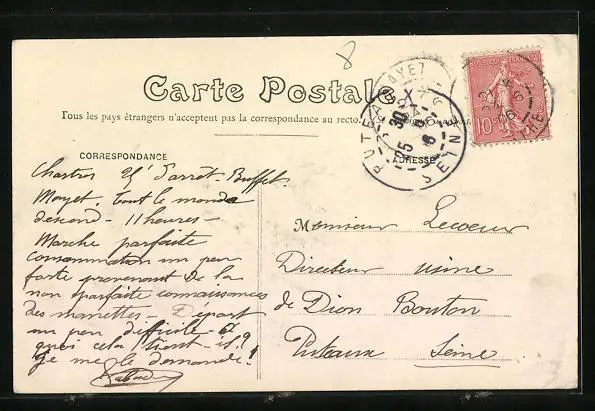 8
Carte Postale
Tous les pays étrangers n'acceptent pas la correspondance au recto.
CORRESPONDANCE
ADRESSE
Chartres 25' d'arrêt-Buffet.
Mayet, tout le monde
descend - 11 heures -
Marche parfaite
Consommation un peu
forte provenant de la
non parfaite connaissances
des manettes - Depart
un peu difficile - à
quoi cela tient-il?
Je me le demande!
Monsieur Lecoeur
Directeur usine
de Dion Bouton
Puteaux Seine
PUTEAUX
SEINE
MAYET
10